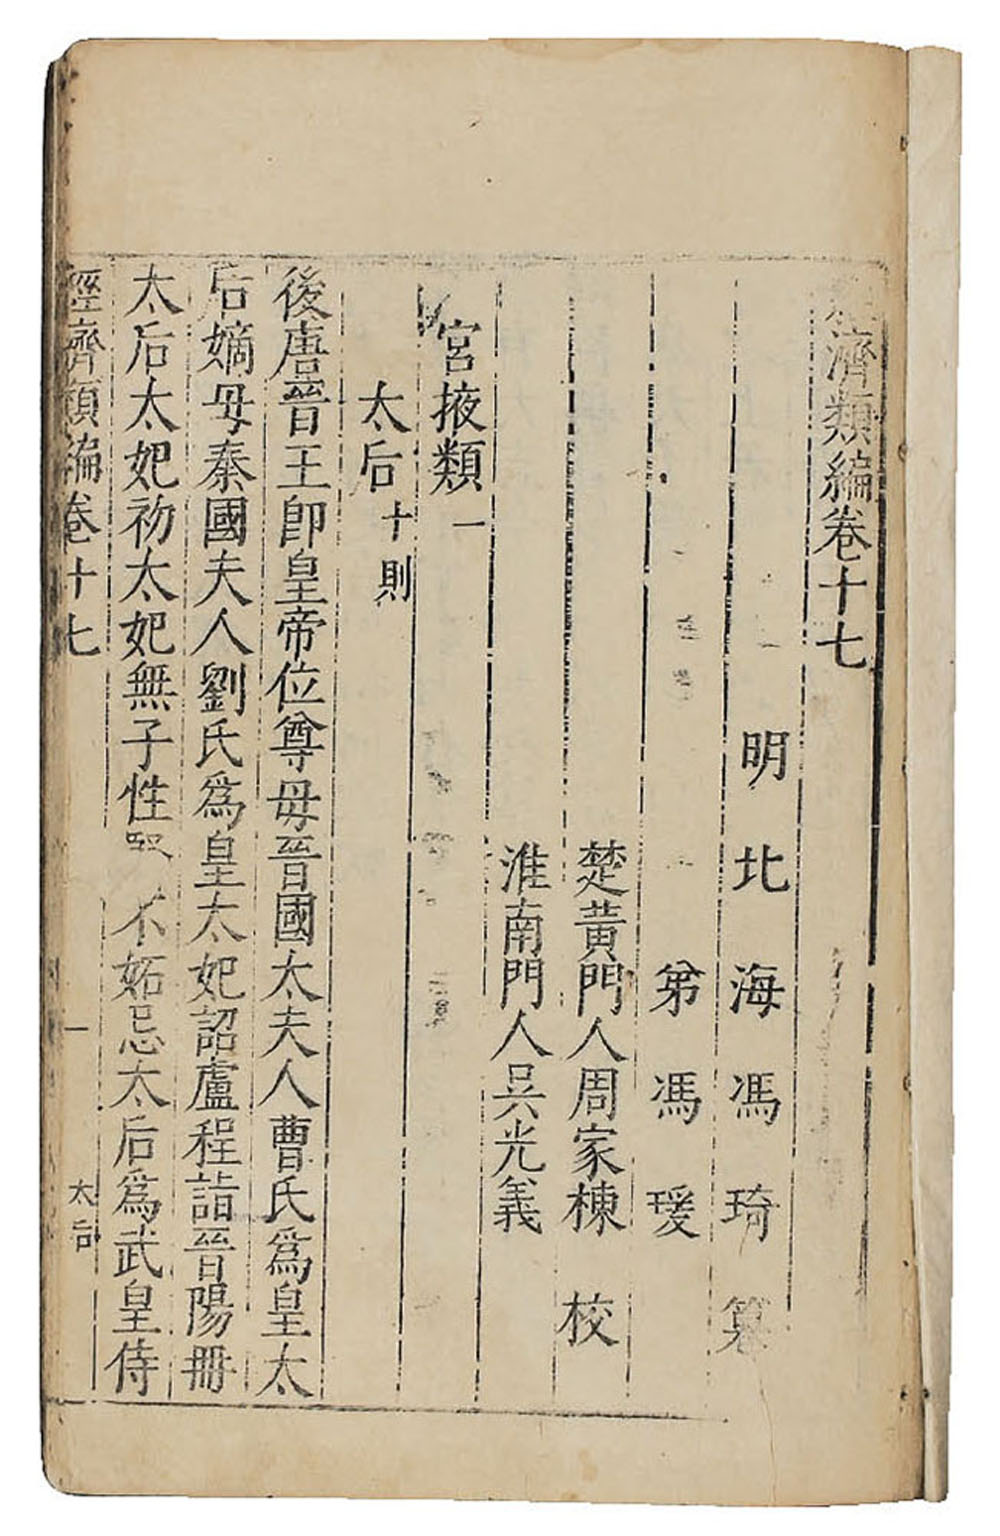 經濟類編卷十七
明北海馮琦纂
弟馮瑗
楚黃門人周家棟校
淮南門人吳光義
宮掖類一
太后十則
後唐晉王即皇帝位尊母晉國太夫人曹氏為皇太
后嫡母秦國夫人劉氏為皇太妃詔盧程詣晉陽冊
太后太妃初太妃無子性不妬忌太后為武皇侍
經濟類編卷十七
一
太后